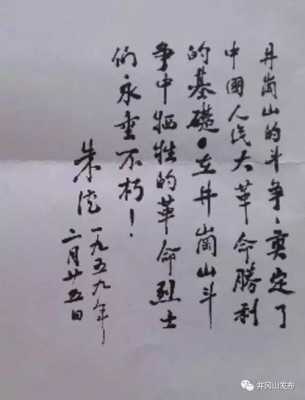 井崗山的斗争，奠定了
中國人民大革命勝利
的基礎。在井崗山斗
争中牺牲的革命烈士
们永垂不朽！
朱德
一九五九年
二月廿五日
井冈山发布